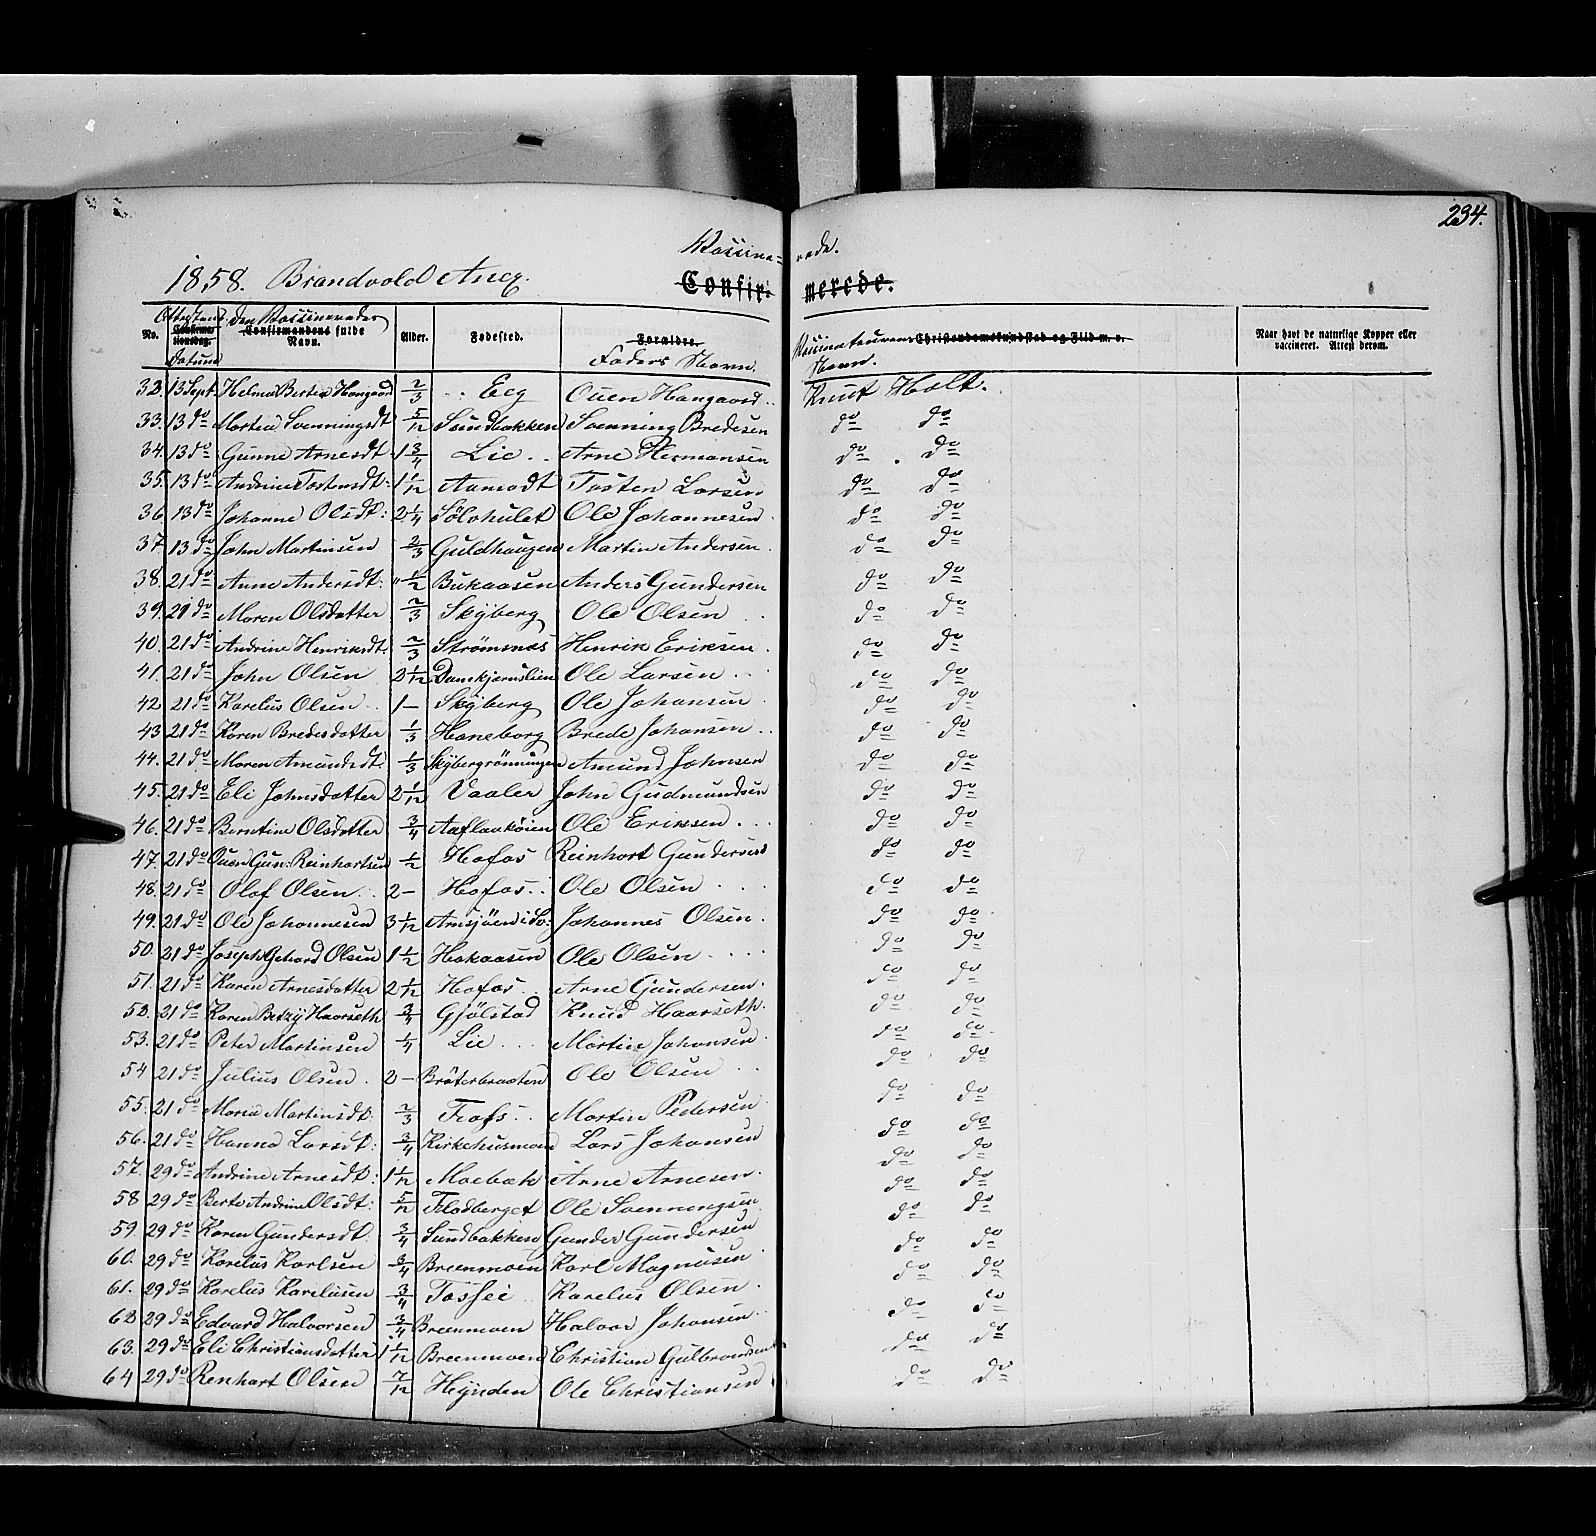 234.
Vaccine= rede.
1858. Brandvold Anex.
Confir= merede.
No. Attestens Datum den Vaccineredes Confirmandens fulde Navn. Alder. Fødested. Forældre. Faders Navn. Vaccinateurens Navn. Christendomskundskab og Flid m. v. Naar havt de naturlige Kopper eller vaccineret. Attest derom.
32. 13 Sept. Helma Bertea Haugaard 2/3 Eeg Ouen Haugaard Knut Holt.
33. 13 do Martea Svenningsdt 5/12 Sundbakken Svenning Bredesen do do
34. 13 do Gunne Arnesdt 1 3/4 Lie Arne Hermansen do do
35. 13 do Andrine Tostensdt: 1 1/12 Aamodt Tosten Larsen do do
36 13 do Johanne Olsdt: 2 1/4 Sölvhulet Ole Johannesen do do
37 13 do John Martinsen 2/3 Guldhaugen Martin Andersen do do
38. 21 do Anne Andersdt: " 1/2 Bukaasen Anders Gundersen do do
39. 21 do Maren Olsdatter 2/3 Skÿberg Ole Olsen do do
40. 21 do Andrine Henriksdt. 2/3 Strømsnæs Henrik Eriksen do do
41. 21 do John Olsen 2 1/12 Damkjernslien Ole Larsen do do
42 21 do Karelius Olsen 1 — Skÿberg Ole Johansen do do
43 21 do Karen Bredesdatter 1/3 Haneborg Brede Johansen do do
44. 21 do Maren Amundsdt 1/3 Skÿbergrönningen Amund Johnsen do do
45. 21 do Eli Johnsdatter 2 1/12 Vaaler John Gudmundsen do do
46. 21 do Berntine Olsdatter 3/4 Aaflaukøien Ole Eriksen do do
47. 21 do Ouen Gun: Reinhartsen 1/2 Hofos Reinhart Gundersen do do
48. 21 do Olaf Olsen 2 — Hofos Ole Olsen do do
49. 21 do Ole Johannesen 3 1/12 Arnsjöen i Sv: Johannes Olsen do do
50. 21 do Joseph Gehard Olsen 1 1/2 Hokaasen Ole Olsen do do
51. 21 do Karen Arnesdatter 2 1/12 Hofos Arne Gundersen do do
52. 21 do Karen Betzÿ Haarseth 3/4 Gjölstad Knud Haarseth do do
53. 21 do Peter Martinsen 1/4 Lie Martin Johansen do do
54 21 do Julius Olsen 2 — Bråterbraaten Ole Olsen do do
55. 21 do Maren Martinsdt: 2/3 Trafs Martin Pedersen do do
56. 21 do Hanna Larsdt: 3/4 Kirkehusmoen Lars Johansen do do
57. 29 do Andrine Arnesdt: 1 1/12 Moebæk Arne Arnesen do do
58 29 do Berte Andrine Olsdt: 5/12 Flodberget Ole Svenningsen do do
59 29 do Karen Gundersdt. 3/4 Sundbakken Gunder Gundersen do do
60. 29 do Karelius Karlsen 3/4 Breenmoen Karl Magnusen do do
61. 29 do Karelus Kareliusen 3/4 Tossei Karelius Olsen do do
62 29 do Edvard Halvorsen 3/4 Breenmoen Halvor Johansen do do
63. 29 do Eli Christiansdatter 1 1/12 Breenmoen Christian Gulbrandsen do do
64 29 do Renhart Olsen 7/12 Heÿnden Ole Christiansen do do